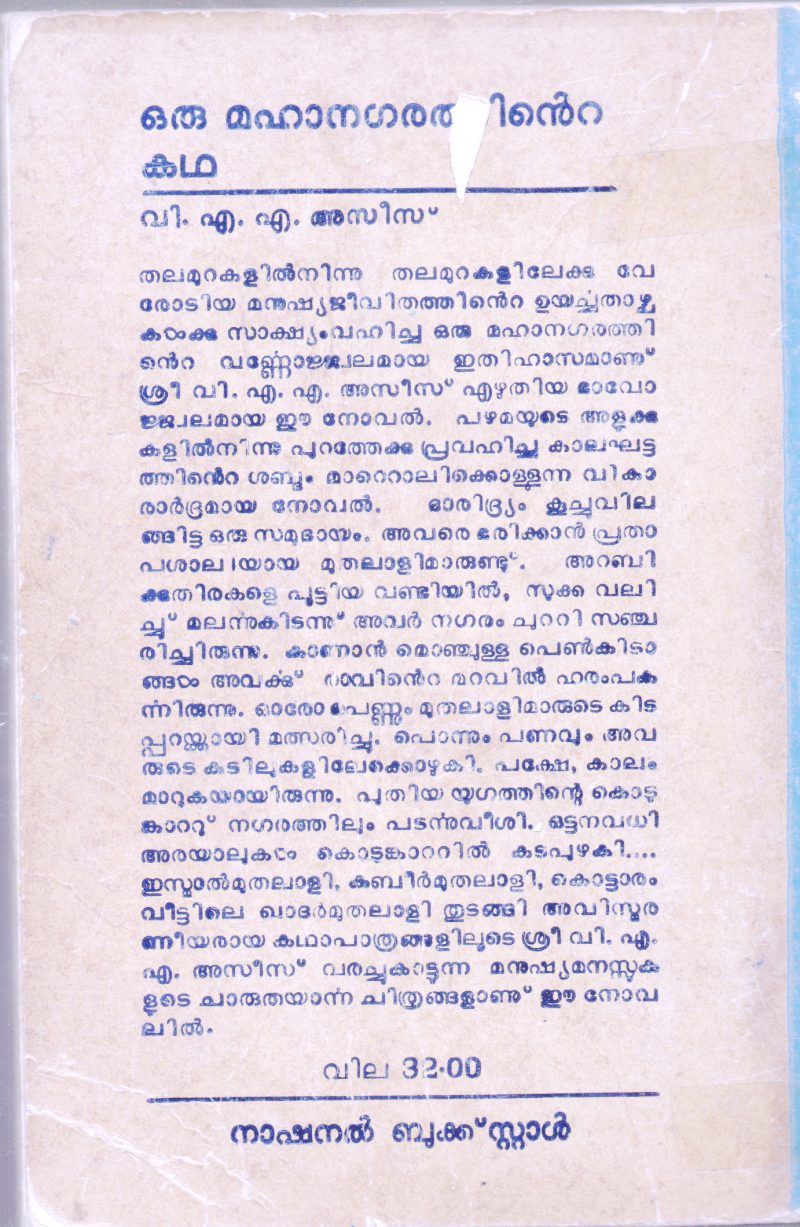 ഒരു മഹാനഗരത്തിൻെറ
കഥ
വി. എ. എ. അസീസ്
തലമുറകളിൽനിന്നു തലമുറകളിലേക്കു വേ
രോടിയ മനുഷ്യജീവിതത്തിൻെറ ഉയർച്ചതാഴ്ച
കൾക്കു സാക്ഷ്യംവഹിച്ച ഒരു മഹാനഗരത്തി
ൻെറ വർണ്ണോജ്ജ്വലമായ ഇതിഹാസമാണു്
ശ്രീ വി. എ. എ. അസീസ് എഴുതിയ ഭാവോ
ജ്ജ്വലമായ ഈ നോവൽ. പഴമയുടെ അളുക്കു
കളിൽനിന്നു പുറത്തേക്കു പ്രവഹിച്ച കാലഘട്ട
ത്തിൻെറ ശബ്ദം മാറെറാലിക്കൊള്ളുന്ന വികാ
രാർദ്രമായ നോവൽ. ദാരിദ്ര്യം കൂച്ചുവില
ങ്ങിട്ട ഒരു സമുദായം. അവരെ ഭരിക്കാൻ പ്രതാ
പശാലിയായ മുതലാളിമാരുണ്ടു്. അറബി
ക്കുതിരകളെ പൂട്ടിയ വണ്ടിയിൽ, സുക്ക വലി
ച്ചു് മലന്നുകിടന്നു് അവർ നഗരം ചുററി സഞ്ച
രിച്ചിരുന്നു. കാണാൻ മൊഞ്ചുള്ള പെൺകിടാ
ങ്ങൾ അവർക്കു് രാവിൻെറ മറവിൽ ഹരംപക
ർന്നിരുന്നു. ഓരോ പെണ്ണും മുതലാളിമാരുടെ കിട
പ്പറയ്ക്കായി മത്സരിച്ചു. പൊന്നും പണവും അവ
രുടെ കുടിലുകളിലേക്കൊഴുകി. പക്ഷേ, കാലം
മാറുകയായിരുന്നു. പുതിയ യുഗത്തിന്റെ കൊടു
ങ്കാററു് നഗരത്തിലും പടർന്നുവീശി. ഒട്ടനവധി
അരയാലുകൾ കൊടുങ്കാററിൽ കടപുഴകി....
ഇസ്മാൽമുതലാളി, കബീർമുതലാളി, കൊട്ടാരം
വീട്ടിലെ ഖാദർമുതലാളി തുടങ്ങി അവിസ്മര
ണീയരായ കഥാപാത്രങ്ങളിലൂടെ ശ്രീ വി. എ.
എ. അസീസ് വരച്ചുകാട്ടുന്ന മനുഷ്യമനസ്സുക
ളുടെ ചാരുതയാർന്ന ചിത്രങ്ങളാണു് ഈ നോവ
ലിൽ.
വില 32·00
നാഷനൽ ബുക്ക്സ്റ്റാൾ